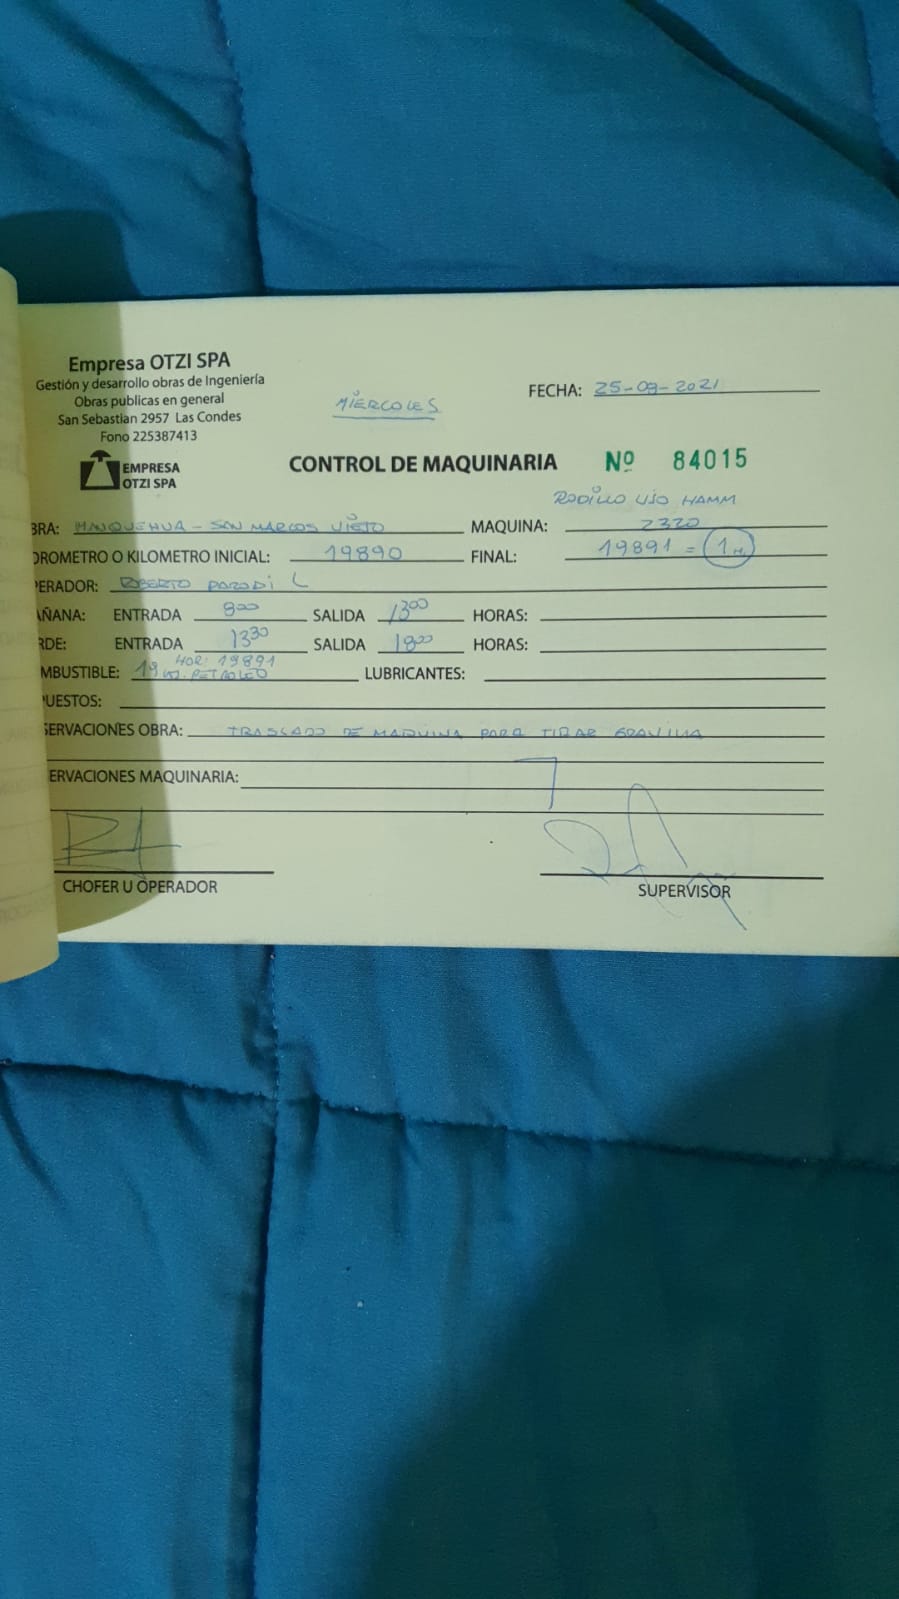 Empresa OTZI SPA
Gestión y desarrollo obras de Ingeniería
Obras publicas en general
San Sebastian 2957 Las Condes
Fono 225387413
EMPRESA
OTZI SPA
MIÉRCOLES
FECHA: 25-08-2021
CONTROL DE MAQUINARIA Nº 84015
RODILLO LISO HAMM
BRA: MANQUEHUA - SAN MARCOS VIEJO MAQUINA: 2320
OROMETRO O KILOMETRO INICIAL: 19890 FINAL: 19891 = 1 H.
PERADOR: ROBERTO PARODI L
AÑANA: ENTRADA 800 SALIDA 1300 HORAS:
RDE: ENTRADA 1330 SALIDA 1800 HORAS:
HOR: 19891
MBUSTIBLE: 19 PETROLEO LUBRICANTES:
PUESTOS:
SERVACIONES OBRA: TRASLADO DE MAQUINA PARA TIRAR GRAVILLA
ERVACIONES MAQUINARIA:
CHOFER U OPERADOR
SUPERVISOR